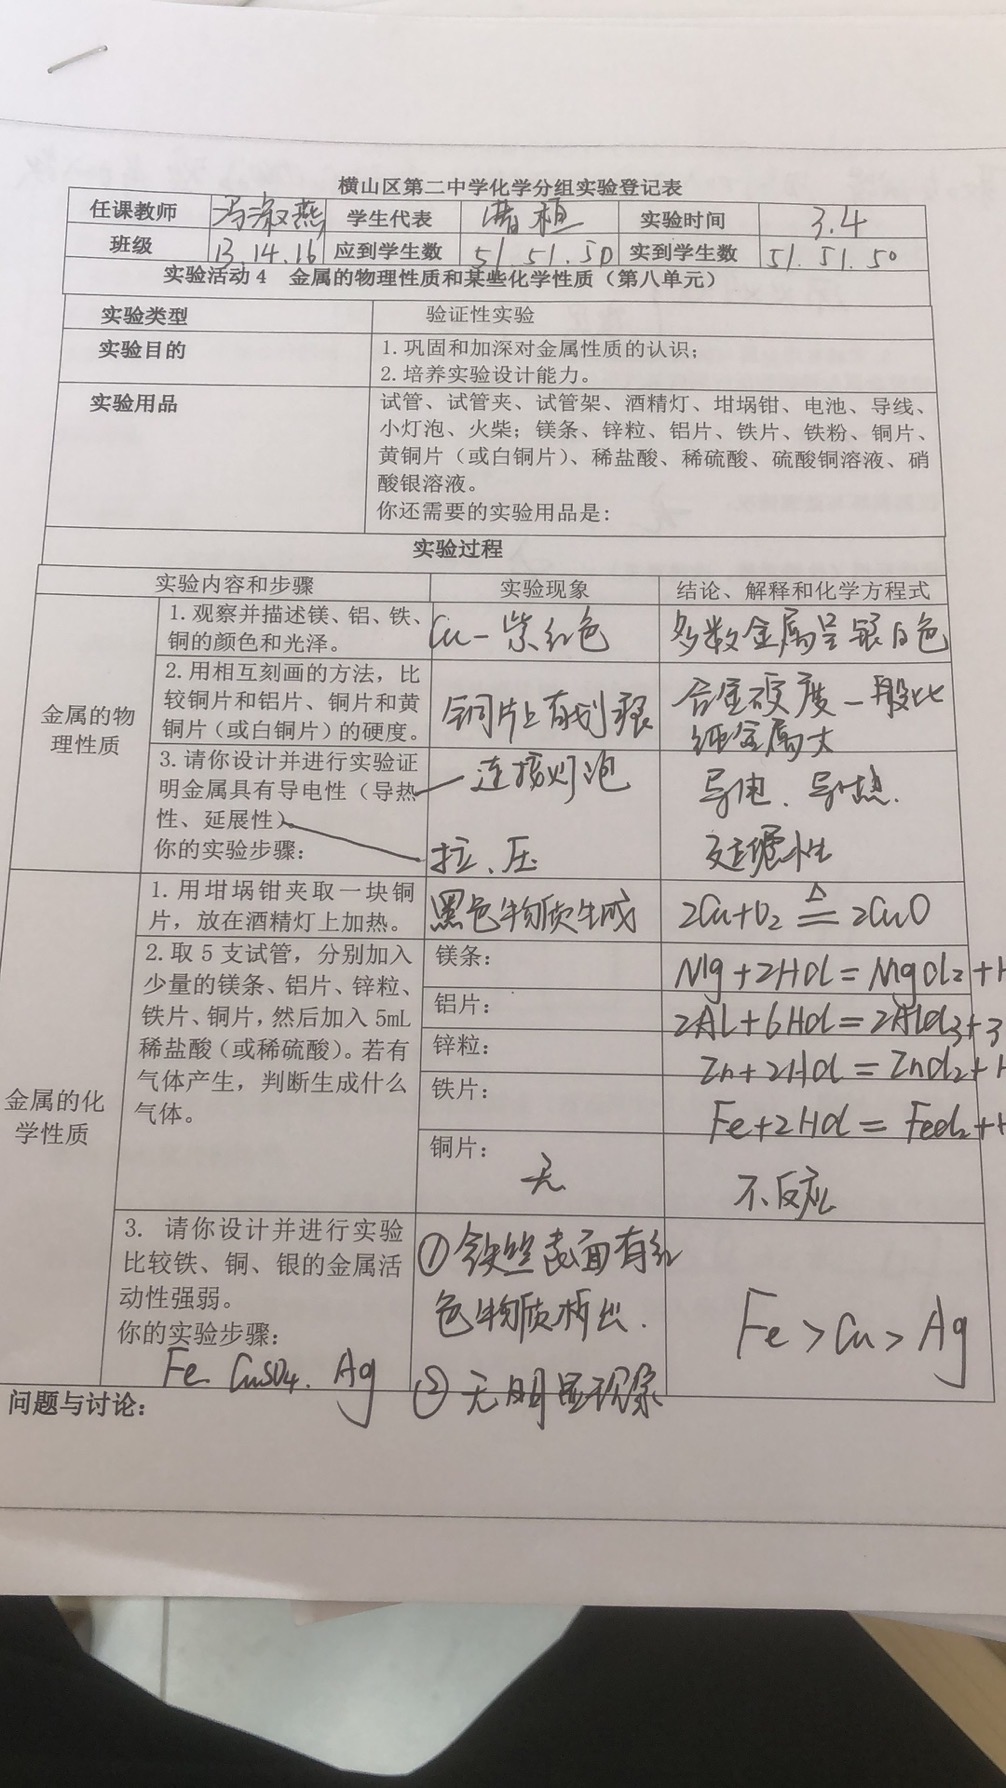 横山区第二中学化学分组实验登记表
任课教师 冯淑燕 学生代表 实验时间 3.4
班级 13.14.16 应到学生数 51.51.50 实到学生数 51.51.50
实验活动4 金属的物理性质和某些化学性质（第八单元）
实验类型 验证性实验
实验目的 1.巩固和加深对金属性质的认识；
2.培养实验设计能力。
实验用品 试管、试管夹、试管架、酒精灯、坩埚钳、电池、导线、
小灯泡、火柴；镁条、锌粒、铝片、铁片、铁粉、铜片、
黄铜片（或白铜片）、稀盐酸、稀硫酸、硫酸铜溶液、硝
酸银溶液。
你还需要的实验用品是：
实验过程
实验内容和步骤 实验现象 结论、解释和化学方程式
金属的物
理性质
1.观察并描述镁、铝、铁、
铜的颜色和光泽。
Cu—紫红色
多数金属呈银白色
2.用相互刻画的方法，比
较铜片和铝片、铜片和黄
铜片（或白铜片）的硬度。
铜片上有划痕
合金硬度一般比
纯金属大
3.请你设计并进行实验证
明金属具有导电性（导热
性、延展性）
你的实验步骤：
连接灯泡
拉、压
导电、导热.
延展性
金属的化
学性质
1.用坩埚钳夹取一块铜
片，放在酒精灯上加热。
黑色物质生成
2Cu+O₂ ≜ 2CuO
2.取5支试管，分别加入
少量的镁条、铝片、锌粒、
铁片、铜片，然后加入5mL
稀盐酸（或稀硫酸）。若有
气体产生，判断生成什么
气体。
镁条：
Mg+2HCl=MgCl₂+H
铝片：
2Al+6HCl=2AlCl₃+3
锌粒：
Zn+2HCl=ZnCl₂+H
铁片：
Fe+2HCl=FeCl₂+H
铜片：
无
不反应
3. 请你设计并进行实验
比较铁、铜、银的金属活
动性强弱。
你的实验步骤：
Fe. CuSO₄. Ag
①铁丝表面有红
色物质析出.
②无明显现象
Fe>Cu>Ag
问题与讨论：